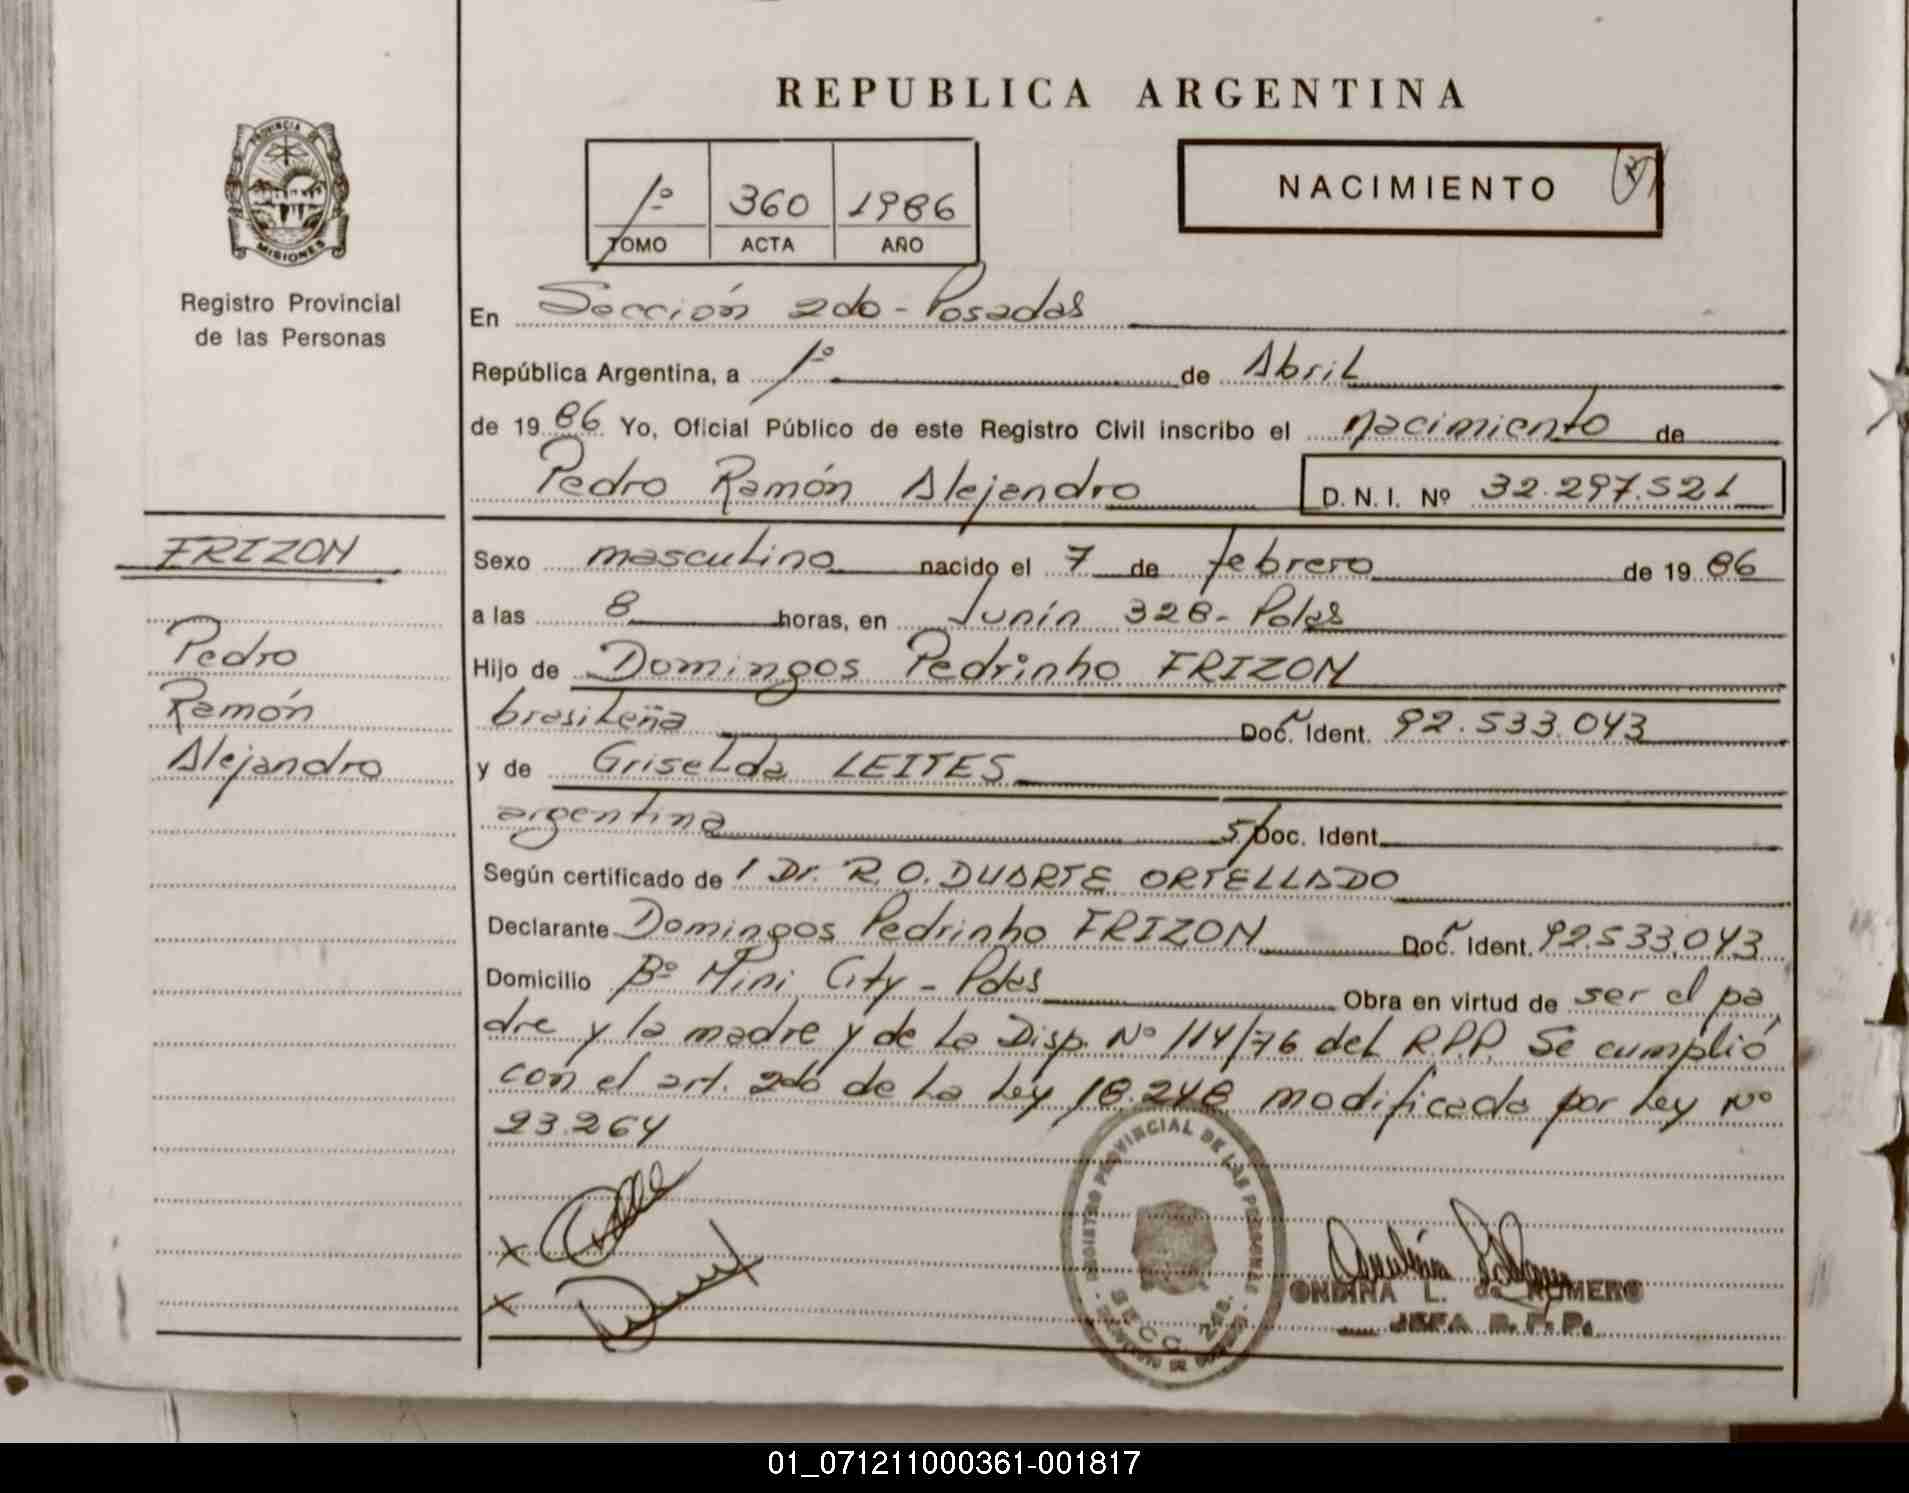 REPUBLICA ARGENTINA
PROVINCIA DE MISIONES
Registro Provincial
de las Personas
1º 360 1986
TOMO ACTA AÑO
NACIMIENTO
En Sección 2do - Posadas
República Argentina, a 1º de Abril
de 1986 Yo, Oficial Público de este Registro Civil inscribo el nacimiento de
Pedro Ramón Alejandro D.N.I. Nº 32.297.521
FRIZON
Pedro
Ramón
Alejandro
Sexo masculino nacido el 7 de febrero de 1986
a las 8 horas, en Junín 328 - Pdas
Hijo de Domingos Pedrinho FRIZON
brasileña Doc. Ident. 92.533.043
y de Griselda LEITES
argentina s/Doc. Ident.
Según certificado de 1 Dr. R.O. DUARTE ORTELLADO
Declarante Domingos Pedrinho FRIZON Doc. Ident. 92.533.043
Domicilio Bº Mini City - Pdas Obra en virtud de ser el pa
dre y la madre y de la Disp. Nº 114/76 del R.P.P. Se cumplió
con el art. 2do de la Ley 18.248 modificada por Ley Nº
23.264
REGISTRO PROVINCIAL DE LAS PERSONAS
SECC. 2da.
ONDINA L. de ROMERO
JEFA R.P.P.
01_071211000361-001817